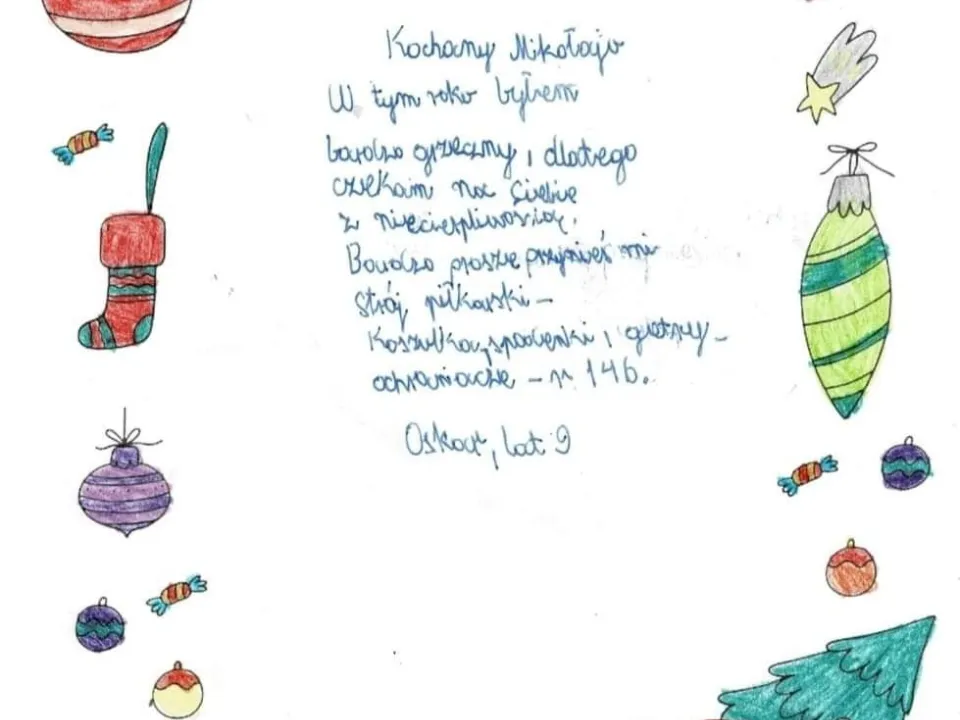 Kochany Mikołaju
W tym roku byłem
bardzo grzeczny i dlatego
czekam na Ciebie
z niecierpliwością.
Bardzo proszę przynieś mi
strój piłkarski –
koszulka, spodenki i getry –
ochraniacze – r. 146.
Oskar, lat 9